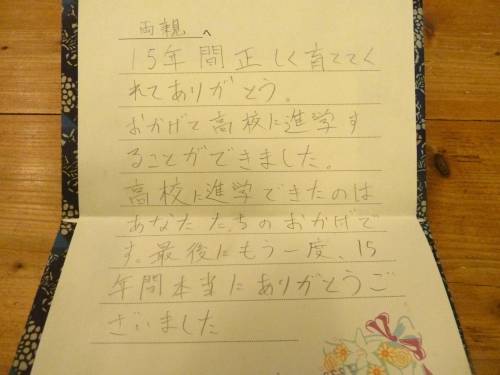 両親へ
15年間正しく育ててく
れてありがとう。
おかげで高校に進学す
ることができました。
高校に進学できたのは
あなたたちのおかげで
す。最後にもう一度、15
年間本当にありがとうご
ざいました